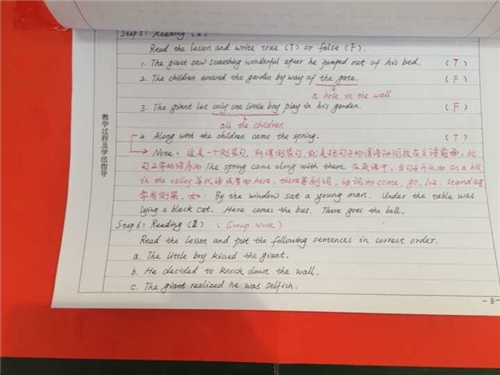 Step 5: Reading (I)
Read the lesson and write true (T) or false (F).
1. The giant saw something wonderful after he jumped out of his bed. (T)
2. The children entered the garden by way of the gate. (F)
a hole in the wall
3. The giant let only one little boy play in his garden. (F)
all the children
4. Along with the children came the spring. (T)
Note: 这是一个倒装句, 所谓倒装句, 就是把句子的谓语动词放在主语前面.
句子正常的语序为 The spring came along with them. 在英语中, on a hill
in the valley 等状语或是如 here, there 等副词, 动词如 come, go, lie, stand 等
常用倒装. 如: By the window sat a young man. Under the table was
lying a black cat. Here comes the bus. There goes the bell.
Step 6: Reading (II) (Group work)
Read the lesson and put the following sentences in correct order.
a. The little boy kissed the giant.
b. He decided to knock down the wall.
c. The giant realized he was selfish.
教学过程及学法指导
-3-